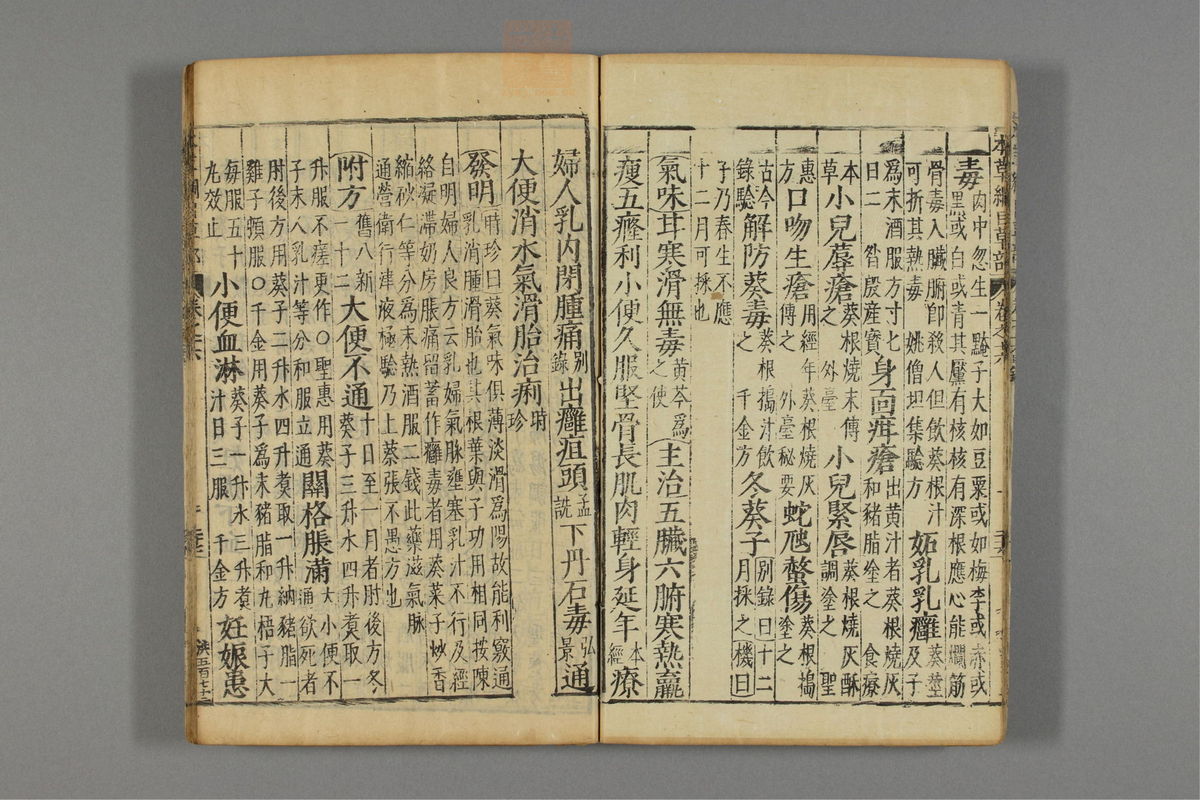 毒肉中忽生一䵟子大如豆粟或如梅李或赤或黑或白或青其黶有核核有深根應心能爛筋
骨毒入臟腑卽殺人但飲葵根汁可折其熱毒 姚僧坦集驗方 妬乳乳癰葵莖及子
爲末酒服方寸匕日二 昝殷産寶 身面疳瘡出黄汁者葵根燒灰和豬脂塗之 食療
本草 小兒蓐瘡葵根燒末傅之 外臺 小兒緊唇葵根燒灰酥調塗之 聖
惠方 口吻生瘡用經年葵根燒灰傅之 外臺秘要 蛇虺螫傷葵根搗塗之
古今錄驗 解防葵毒葵根搗汁飲之 千金方 冬葵子別錄曰十二月採之機曰
子乃春生不應十二月可採也
氣味甘寒滑無毒黄芩爲之使 主治五臟六腑寒熱羸
瘦五癃利小便久服堅骨長肌肉輕身延年本經療
本草綱目草部 卷之十六
婦人乳內閉腫痛別錄出癰疽頭孟詵下丹石毒弘景通
大便消水氣滑胎治痢時珍
發明時珍曰葵氣味俱薄淡滑爲陽故能利竅通乳消腫滑胎也其根葉與子功用相同按陳
自明婦人良方云乳婦氣脉壅塞乳汁不行及經絡凝滯奶房脹痛留蓄作癰毒者用葵菜子炒香
縮砂仁等分爲末熱酒服二錢此藥滋氣脉通營衛行津液極驗乃上蔡張不愚方也
附方舊八新一十二 大便不通十日至一月者肘後方冬葵子三升水四升煮取一
升服不瘥更作○聖惠用葵子末人乳汁等分和服立通 關格脹滿大小便不通欲死者
肘後方用葵子二升水四升煮取一升納豬脂一雞子頓服○千金用葵子爲末豬脂和丸梧子大
每服五十丸效止 小便血淋葵子一升水三升煮汁日三服 千金方 妊娠患